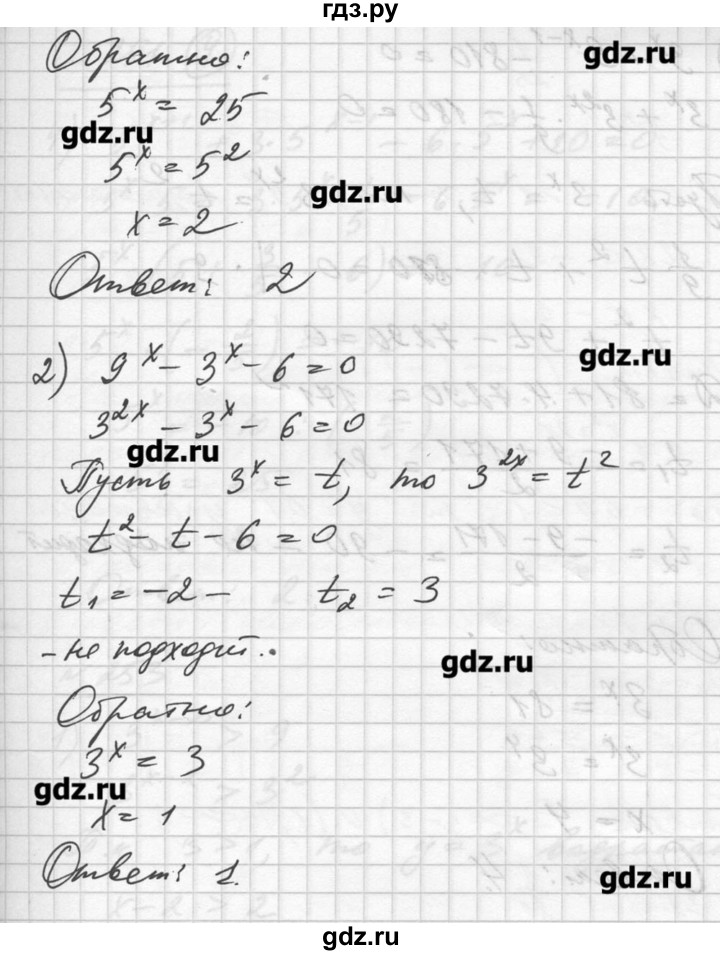 гдз.ру
Обратно:
gdz.ru
5^x = 25
gdz.ru
5^x = 5^2
gdz.ru
x = 2
Ответ: 2
2) 9^x - 3^x - 6 = 0
gdz.ru
3^{2x} - 3^x - 6 = 0
gdz.ru
Пусть 3^x = t, то 3^{2x} = t^2
t^2 - t - 6 = 0
t_1 = -2 - t_2 = 3
- не подходит.
gdz.ru
Обратно:
3^x = 3
gdz.ru
x = 1
Ответ: 1.
gdz.ru
gdz.ru